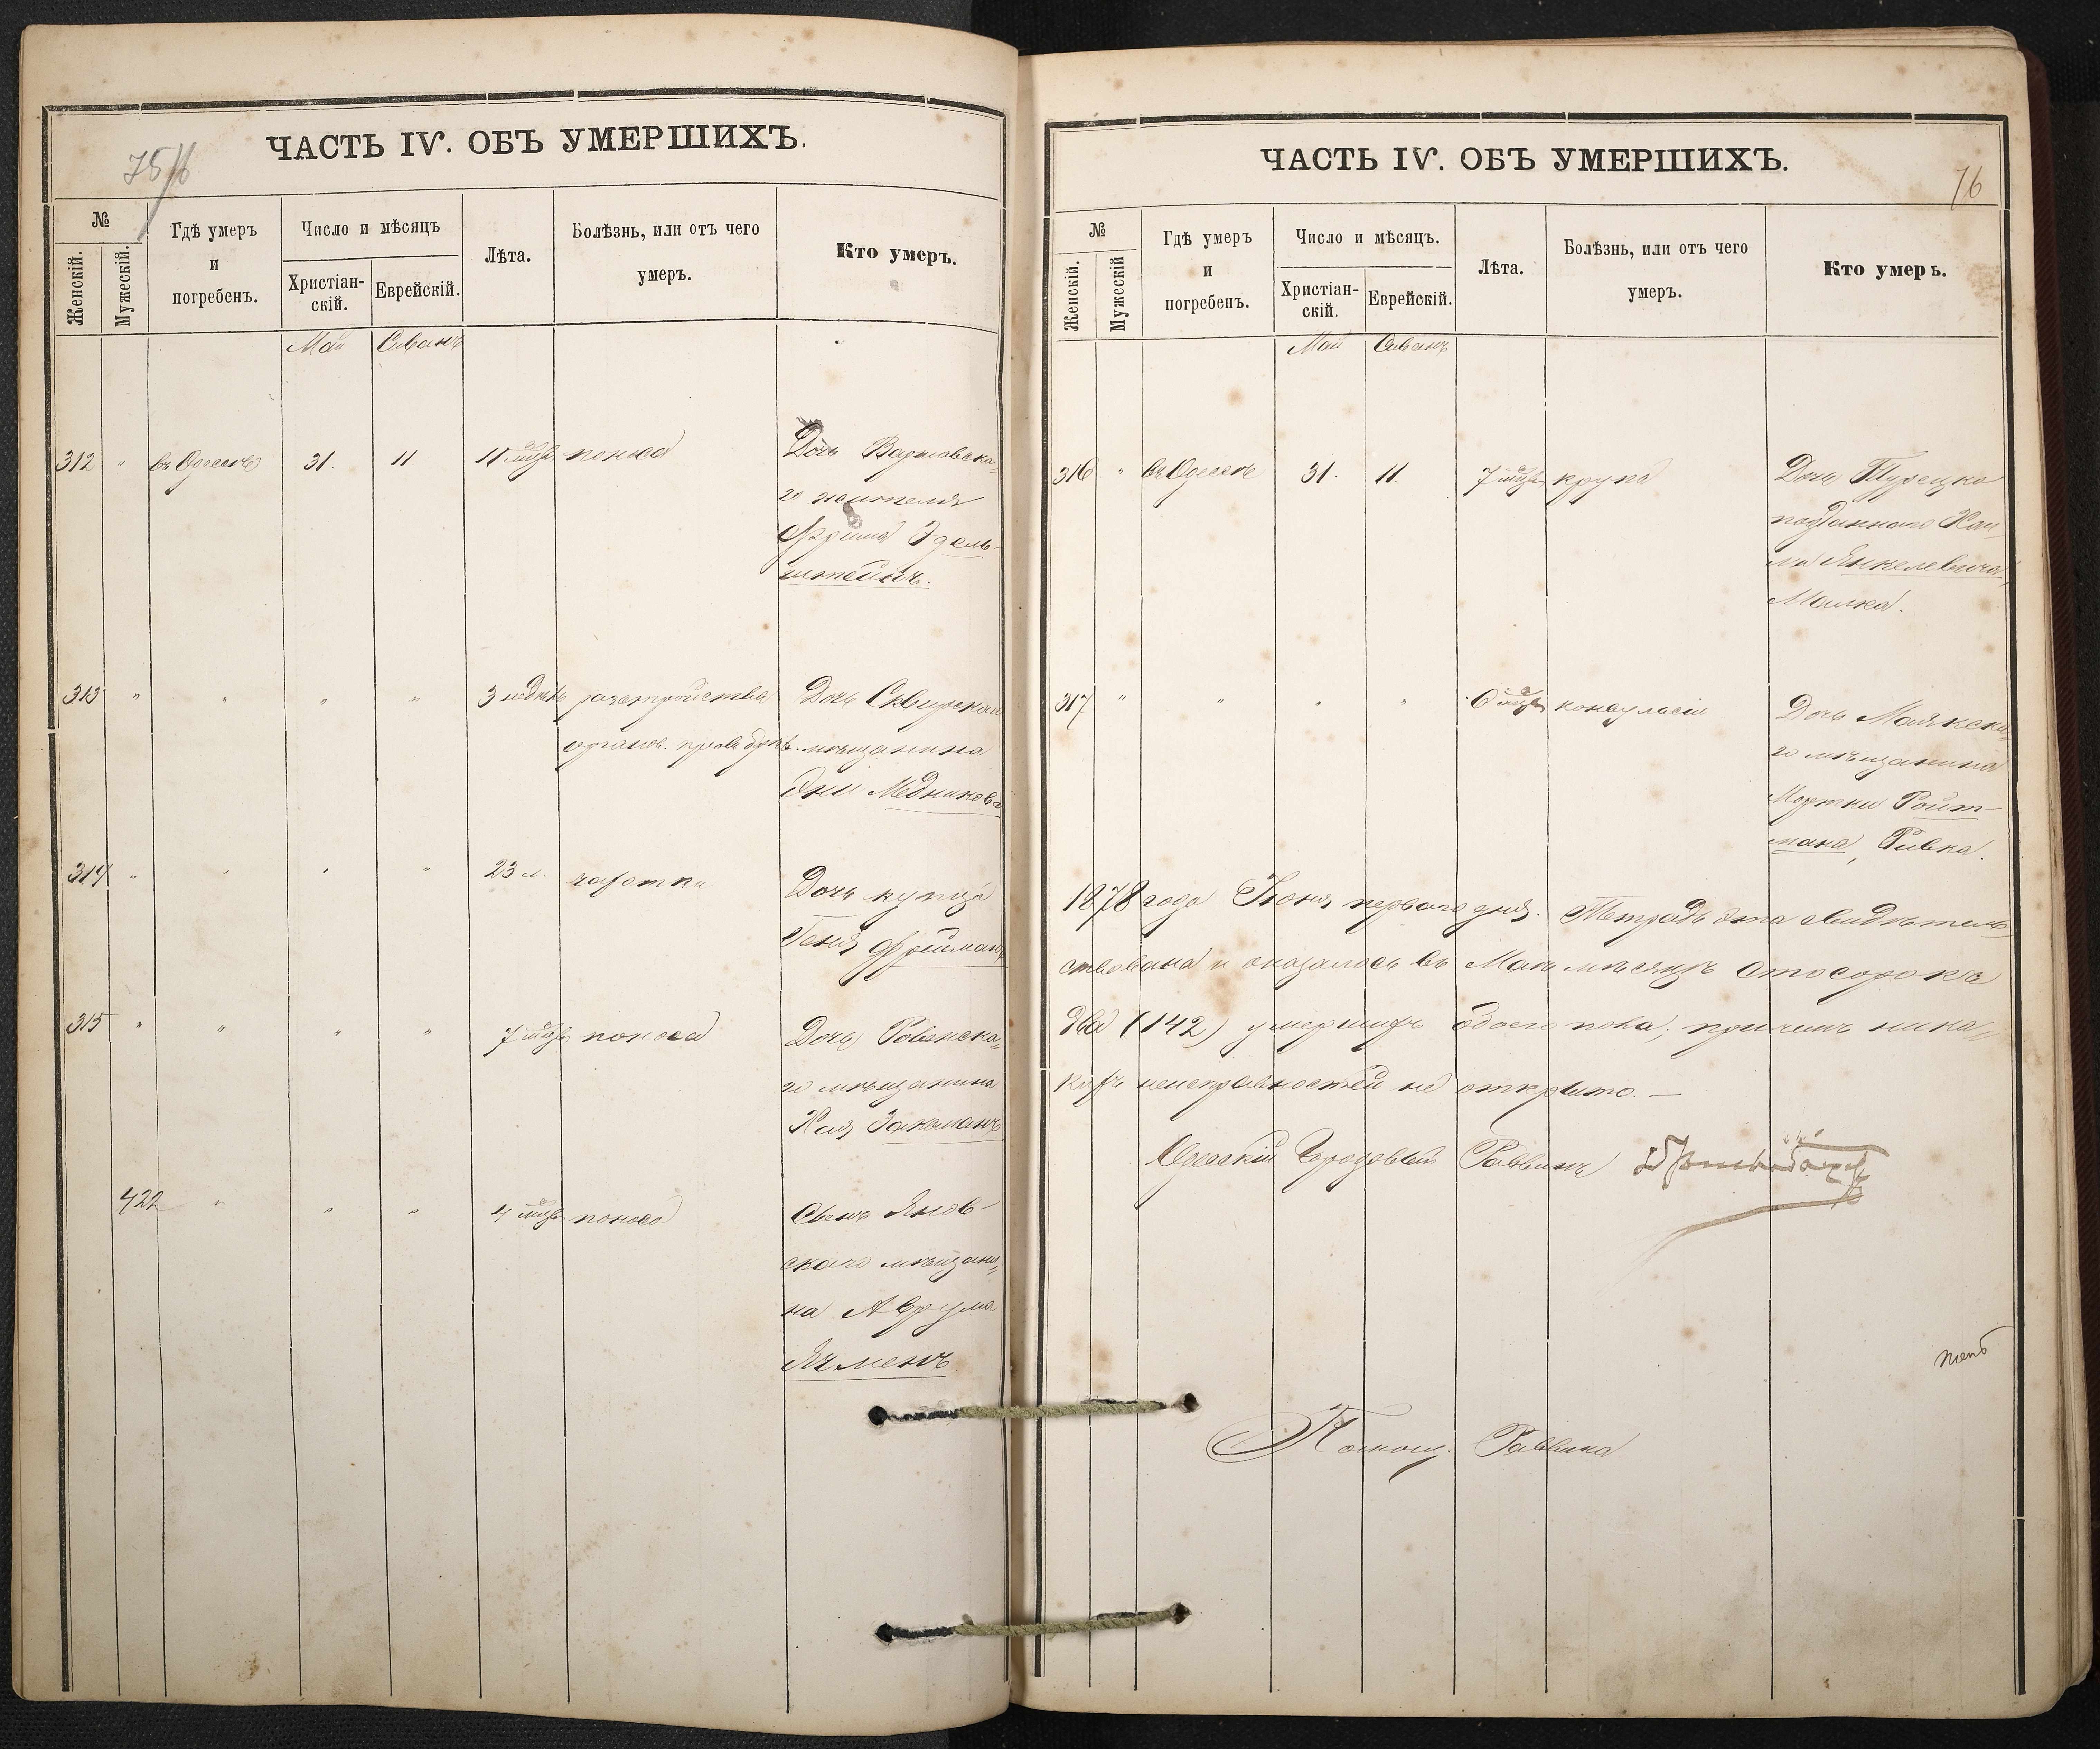 ЧАСТЬ IV. ОБЪ УМЕРШИХЪ.
75/б
№
Женскій.
Мужескій.
Гдѣ умеръ
и
погребенъ.
Число и мѣсяцъ
Христіан-
скій.
Еврейскій.
Лѣта.
Болѣзнь, или отъ чего
умеръ.
Кто умеръ.
Май Сиванъ
312 " въ Одессѣ 31. 11. 11 мѣс поноса Дочь Варшавска-
го жителя
Фрима Эдель-
штейнъ.
313 " " " " 3 недѣль разстройства Дочь Сквирскаго
органов. пров. мѣщанина
Эни Медникова
314 " " " " 23 л. чахотки Дочь купца
Геня Фрейманъ
315 " " " " 7 мѣс поноса Дочь Ровенска-
го мѣщанина
Хая Закманъ
422 " " " 4 мѣс поноса Сынъ Янов-
скаго мѣщани-
на Аврума
Ячменъ
ЧАСТЬ IV. ОБЪ УМЕРШИХЪ.
76
№
Женскій.
Мужескій
Гдѣ умеръ
и
погребенъ.
Число и мѣсяцъ.
Христіан-
скій.
Еврейскій.
Лѣта.
Болѣзнь, или отъ чего
умеръ.
Кто умеръ.
Май Сиванъ
316 " въ Одессѣ 31. 11. 7 мѣс крупа Дочь Турецко
подданного Хаи
ма Янкелевича,
Малка.
317 " " " " 6 мѣс конвульсіи Дочь Маякска-
го мѣщанина
Мортки Ройт-
мана, Ривка.
1878 года Іюня перваго дня. Тетрадь эта свидѣтель-
ствована и оказалось въ Маѣ мѣсяцѣ сто сорокъ
два (142) умершихъ обоего пола; причемъ ника-
кихъ неисправностей не открыто. —
Одесскій Городовый Раввинъ
Помощ. Раввина